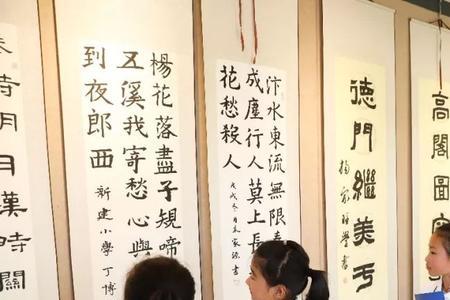 高閣圖
德門繼美
汴水東流無限
成塵行人莫上長
花愁殺人
楊花落盡子規啼
五溪我寄愁心與
到夜郎西
新建小學 丁博
時明月漢時關